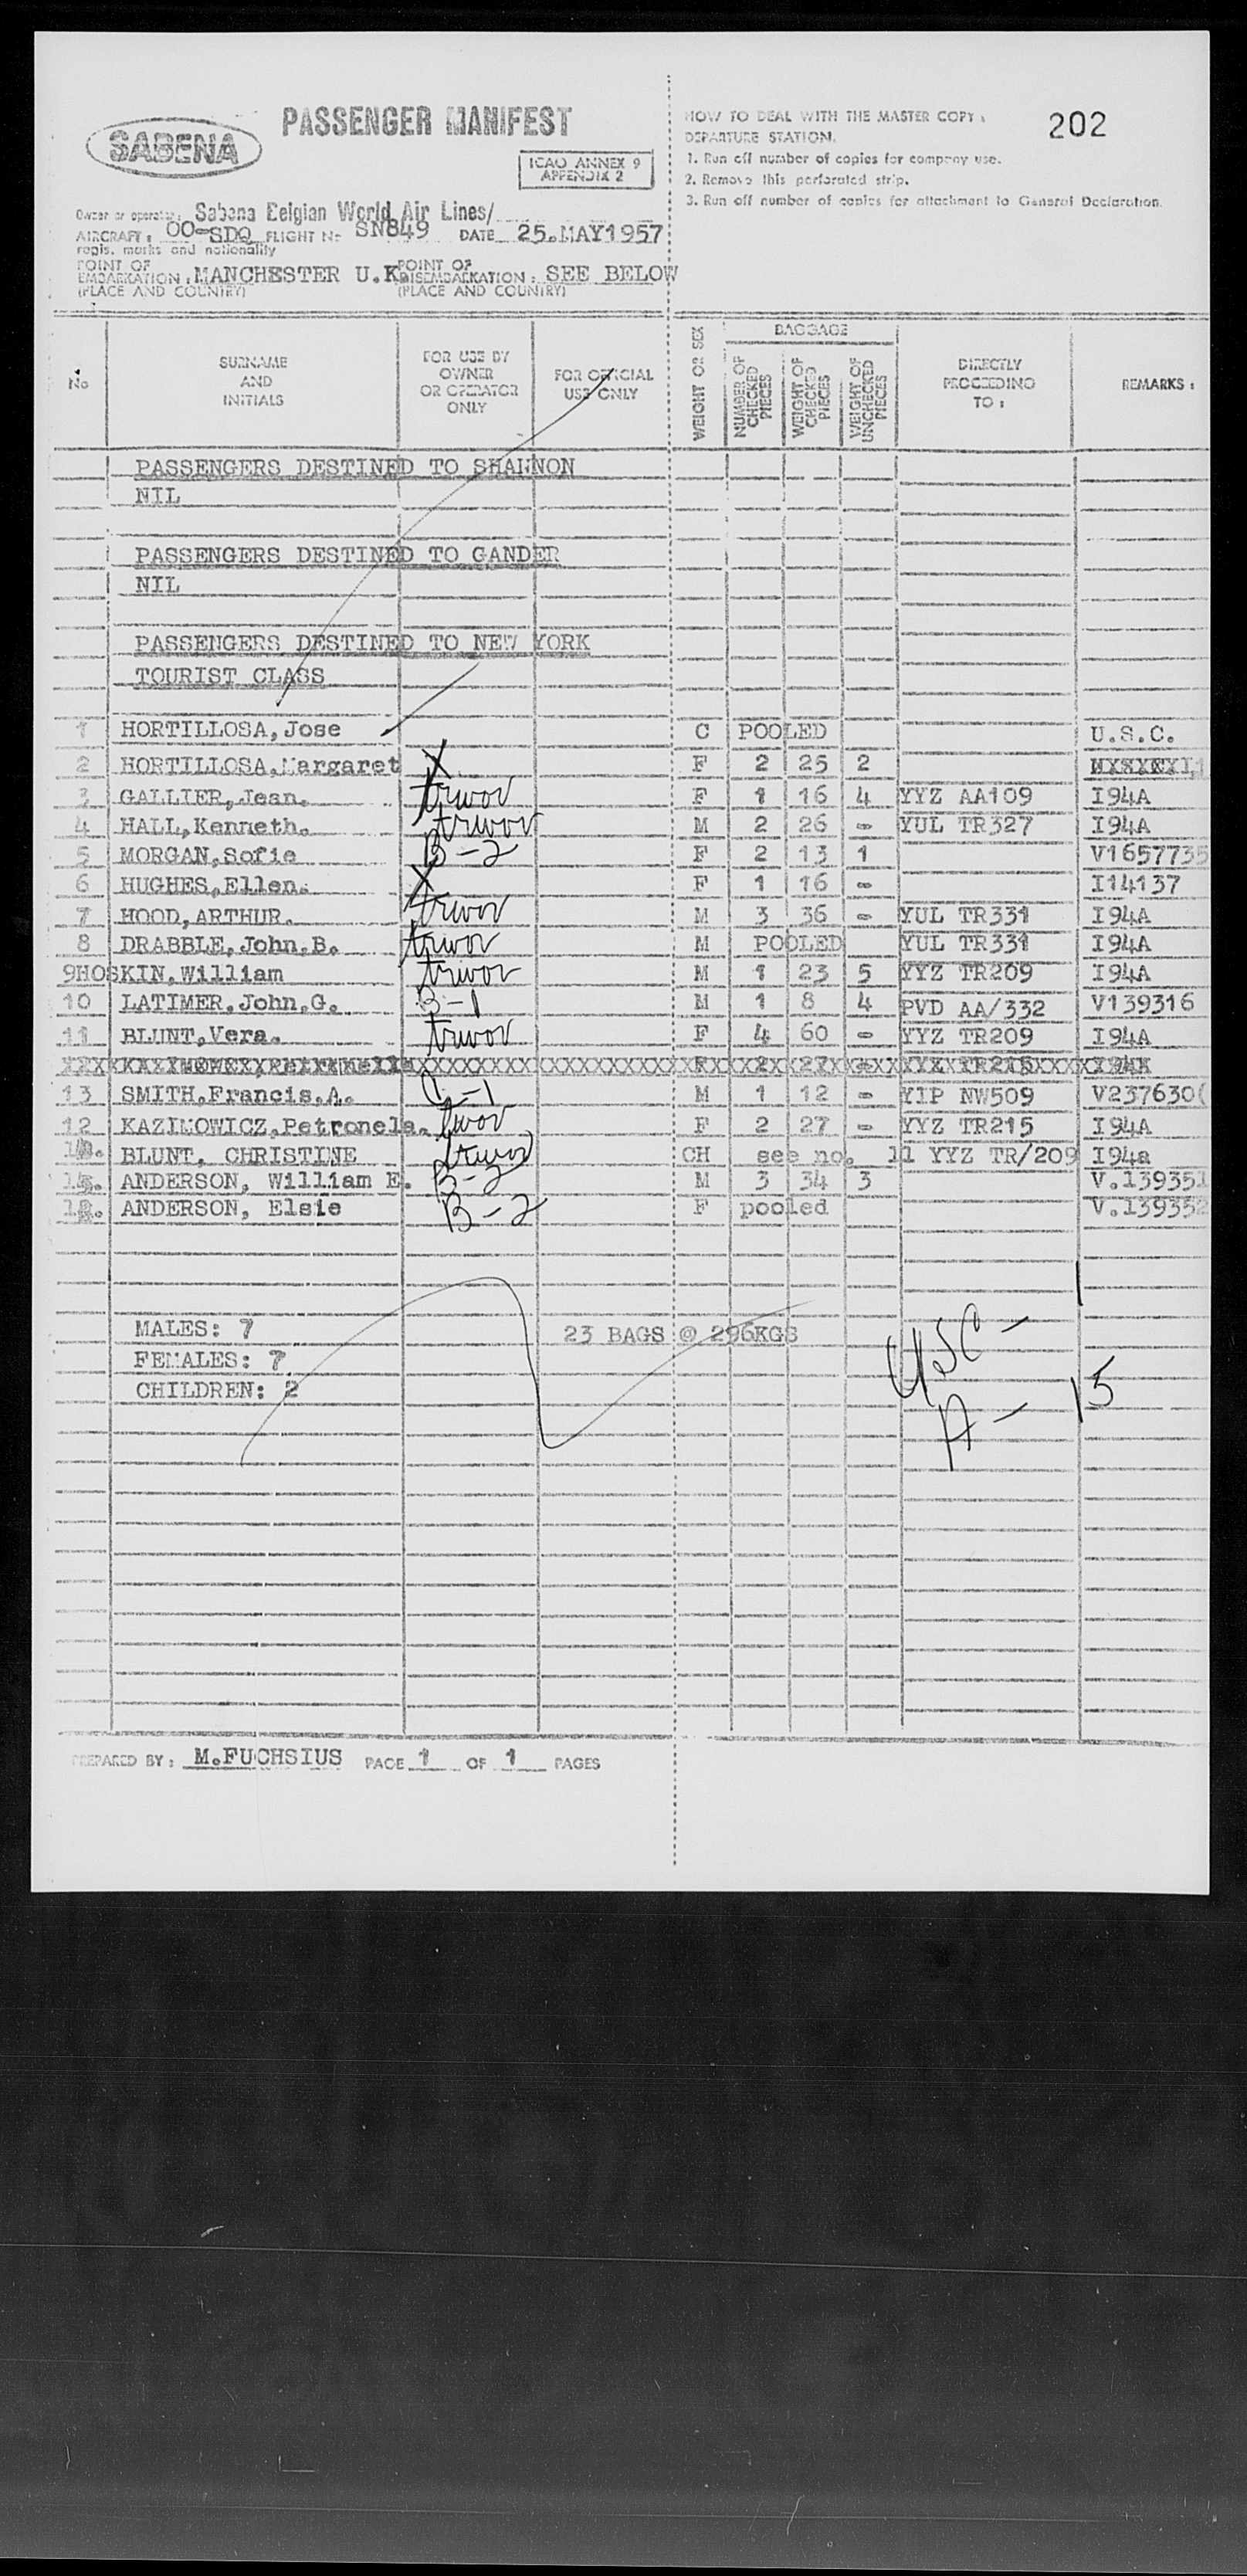 SABENA
PASSENGER MANIFEST
ICAO ANNEX 9
APPENDIX 2
HOW TO DEAL WITH THE MASTER COPY :
DEPARTURE STATION.
1. Run off number of copies for company use.
2. Remove this perforated strip.
3. Run off number of copies for attachment to General Declaration.
202
Owner or operator: Sabena Belgian World Air Lines/
AIRCRAFT: OO-SDQ FLIGHT No: SN849 DATE 25.MAY1957
regis. marks and nationality
POINT OF EMBARKATION: MANCHESTER U.K POINT OF DISEMBARKATION: SEE BELOW
(PLACE AND COUNTRY) (PLACE AND COUNTRY)
No SURNAME AND INITIALS FOR USE BY OWNER OR OPERATOR ONLY FOR OFFICIAL USE ONLY WEIGHT OR SEX BAGGAGE NUMBER OF CHECKED PIECES WEIGHT OF CHECKED PIECES WEIGHT OF UNCHECKED PIECES DIRECTLY PROCEEDING TO: REMARKS:
PASSENGERS DESTINED TO SHANNON
NIL
PASSENGERS DESTINED TO GANDER
NIL
PASSENGERS DESTINED TO NEW YORK
TOURIST CLASS
1 HORTILLOSA,Jose C POOLED U.S.C.
2 HORTILLOSA,Margaret X F 2 25 2
3 GALLIER,Jean. trwov F 1 16 4 YYZ AA109 I94A
4 HALL,Kenneth. trwov M 2 26 - YUL TR327 I94A
5 MORGAN,Sofie B-2 F 2 13 1 V1657735
6 HUGHES,Ellen. X F 1 16 - I14137
7 HOOD,ARTHUR. trwov M 3 36 - YUL TR331 I94A
8 DRABBLE,John,B. trwov M POOLED YUL TR331 I94A
9HOSKIN,William trwov M 1 23 5 YYZ TR209 I94A
10 LATIMER,John,G. B-1 M 1 8 4 PVD AA/332 V139316
11 BLUNT,Vera. trwov F 4 60 - YYZ TR209 I94A
13 SMITH,Francis,A. C-1 M 1 12 - YIP NW509 V237630(
12 KAZIMOWICZ,Petronela. trwov F 2 27 - YYZ TR215 I94A
BLUNT, CHRISTINE trwov CH see no. 11 YYZ TR/209 I94a
ANDERSON, William E. B-2 M 3 34 3 V.139351
ANDERSON, Elsie B-2 F pooled V.139352
MALES: 7 23 BAGS @ 296KGS USC - 1
FEMALES: 7
CHILDREN: 2 A - 15
PREPARED BY: M.FUCHSIUS PAGE 1 OF 1 PAGES